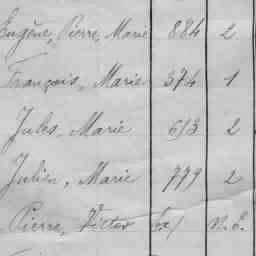 Eugène, Pierre, Marie 884 2
François, Marie 374 1
Jules, Marie 613 2
Julien, Marie 779 2
Pierre, Victor (ex) N.E.